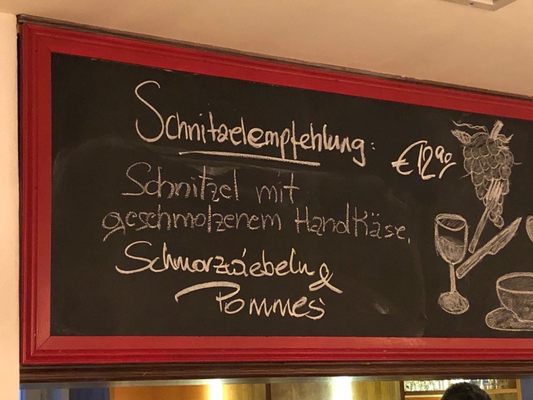 Schnitzelempfehlung: €12,90
Schnitzel mit
geschmolzenem Handkäse,
Schmorzwiebeln &
Pommes